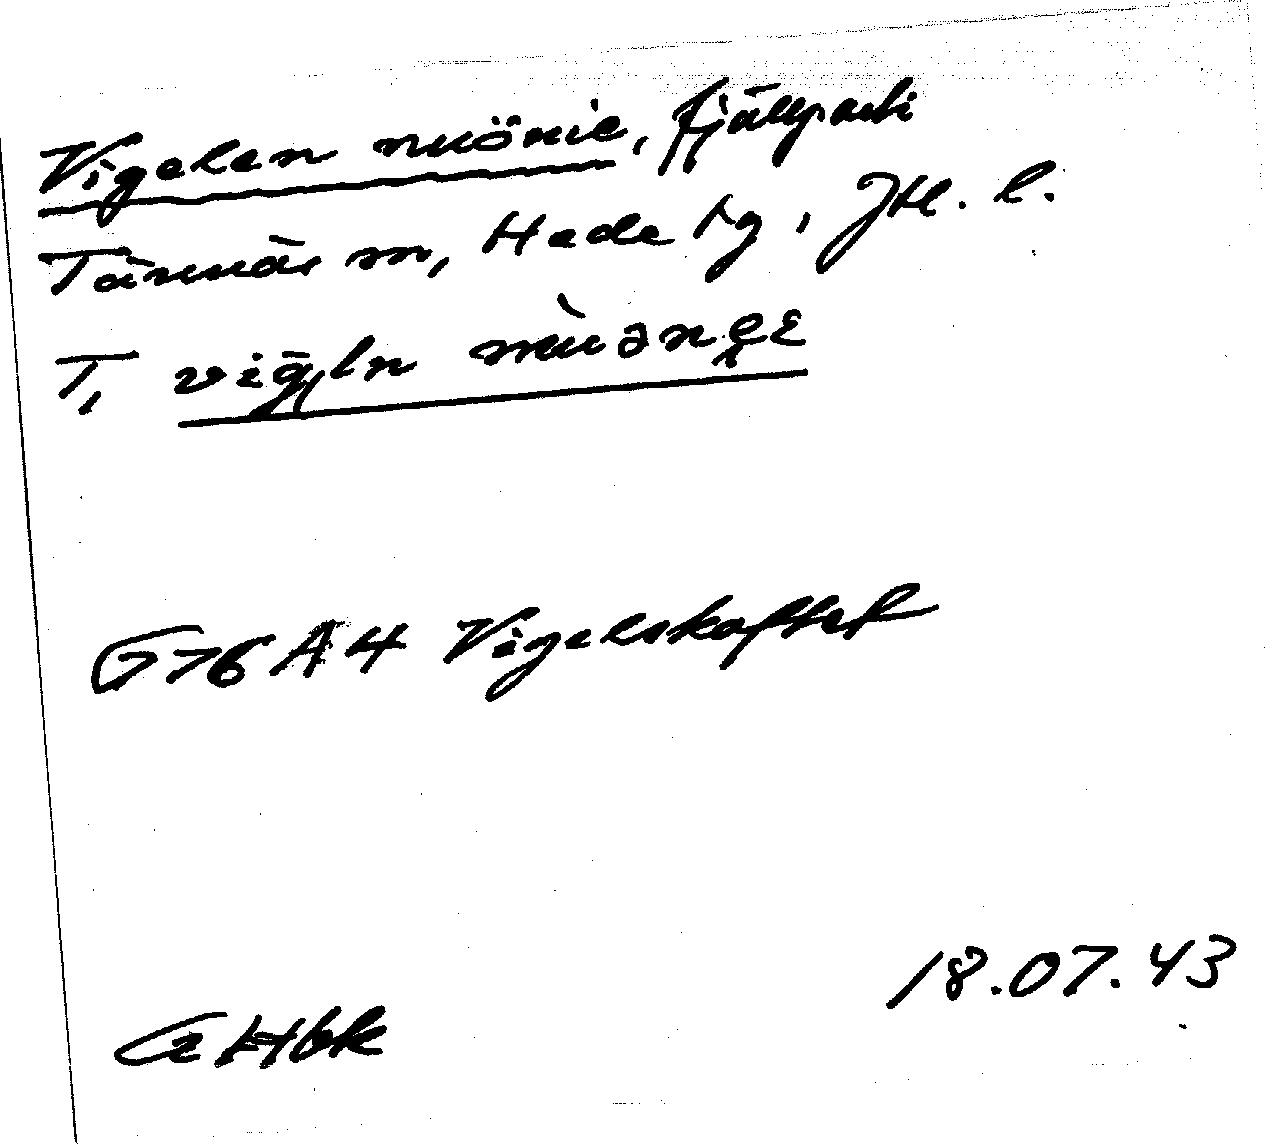 Vigelen nuönie, fjällparti
Tännäs sn, Hede tg, JH. l.
T, vigln nuənɛ
G76 A4 Vigelskaftet
18.07.43
CHbk